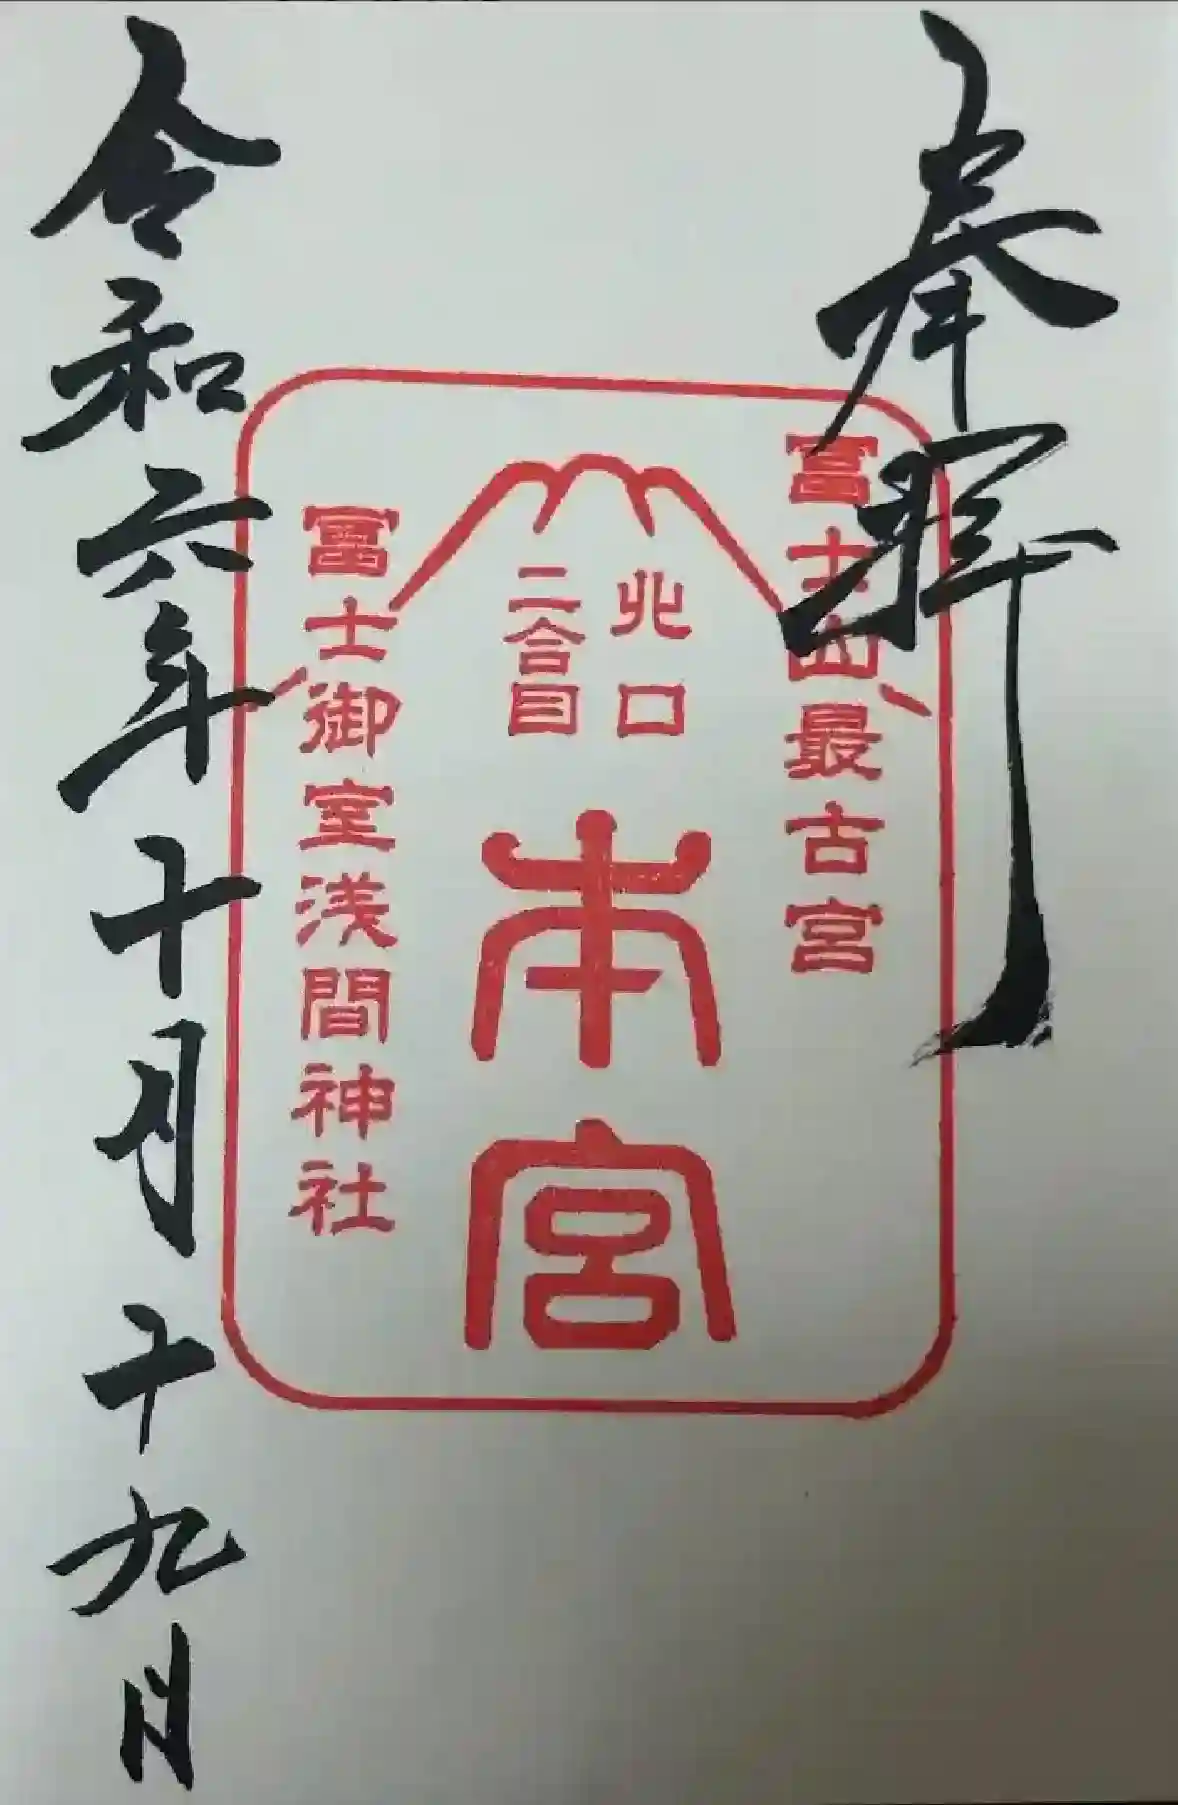 奉拝
冨士山最古宮
北口
二合目
本宮
冨士御室浅間神社
令和六年十月十九日